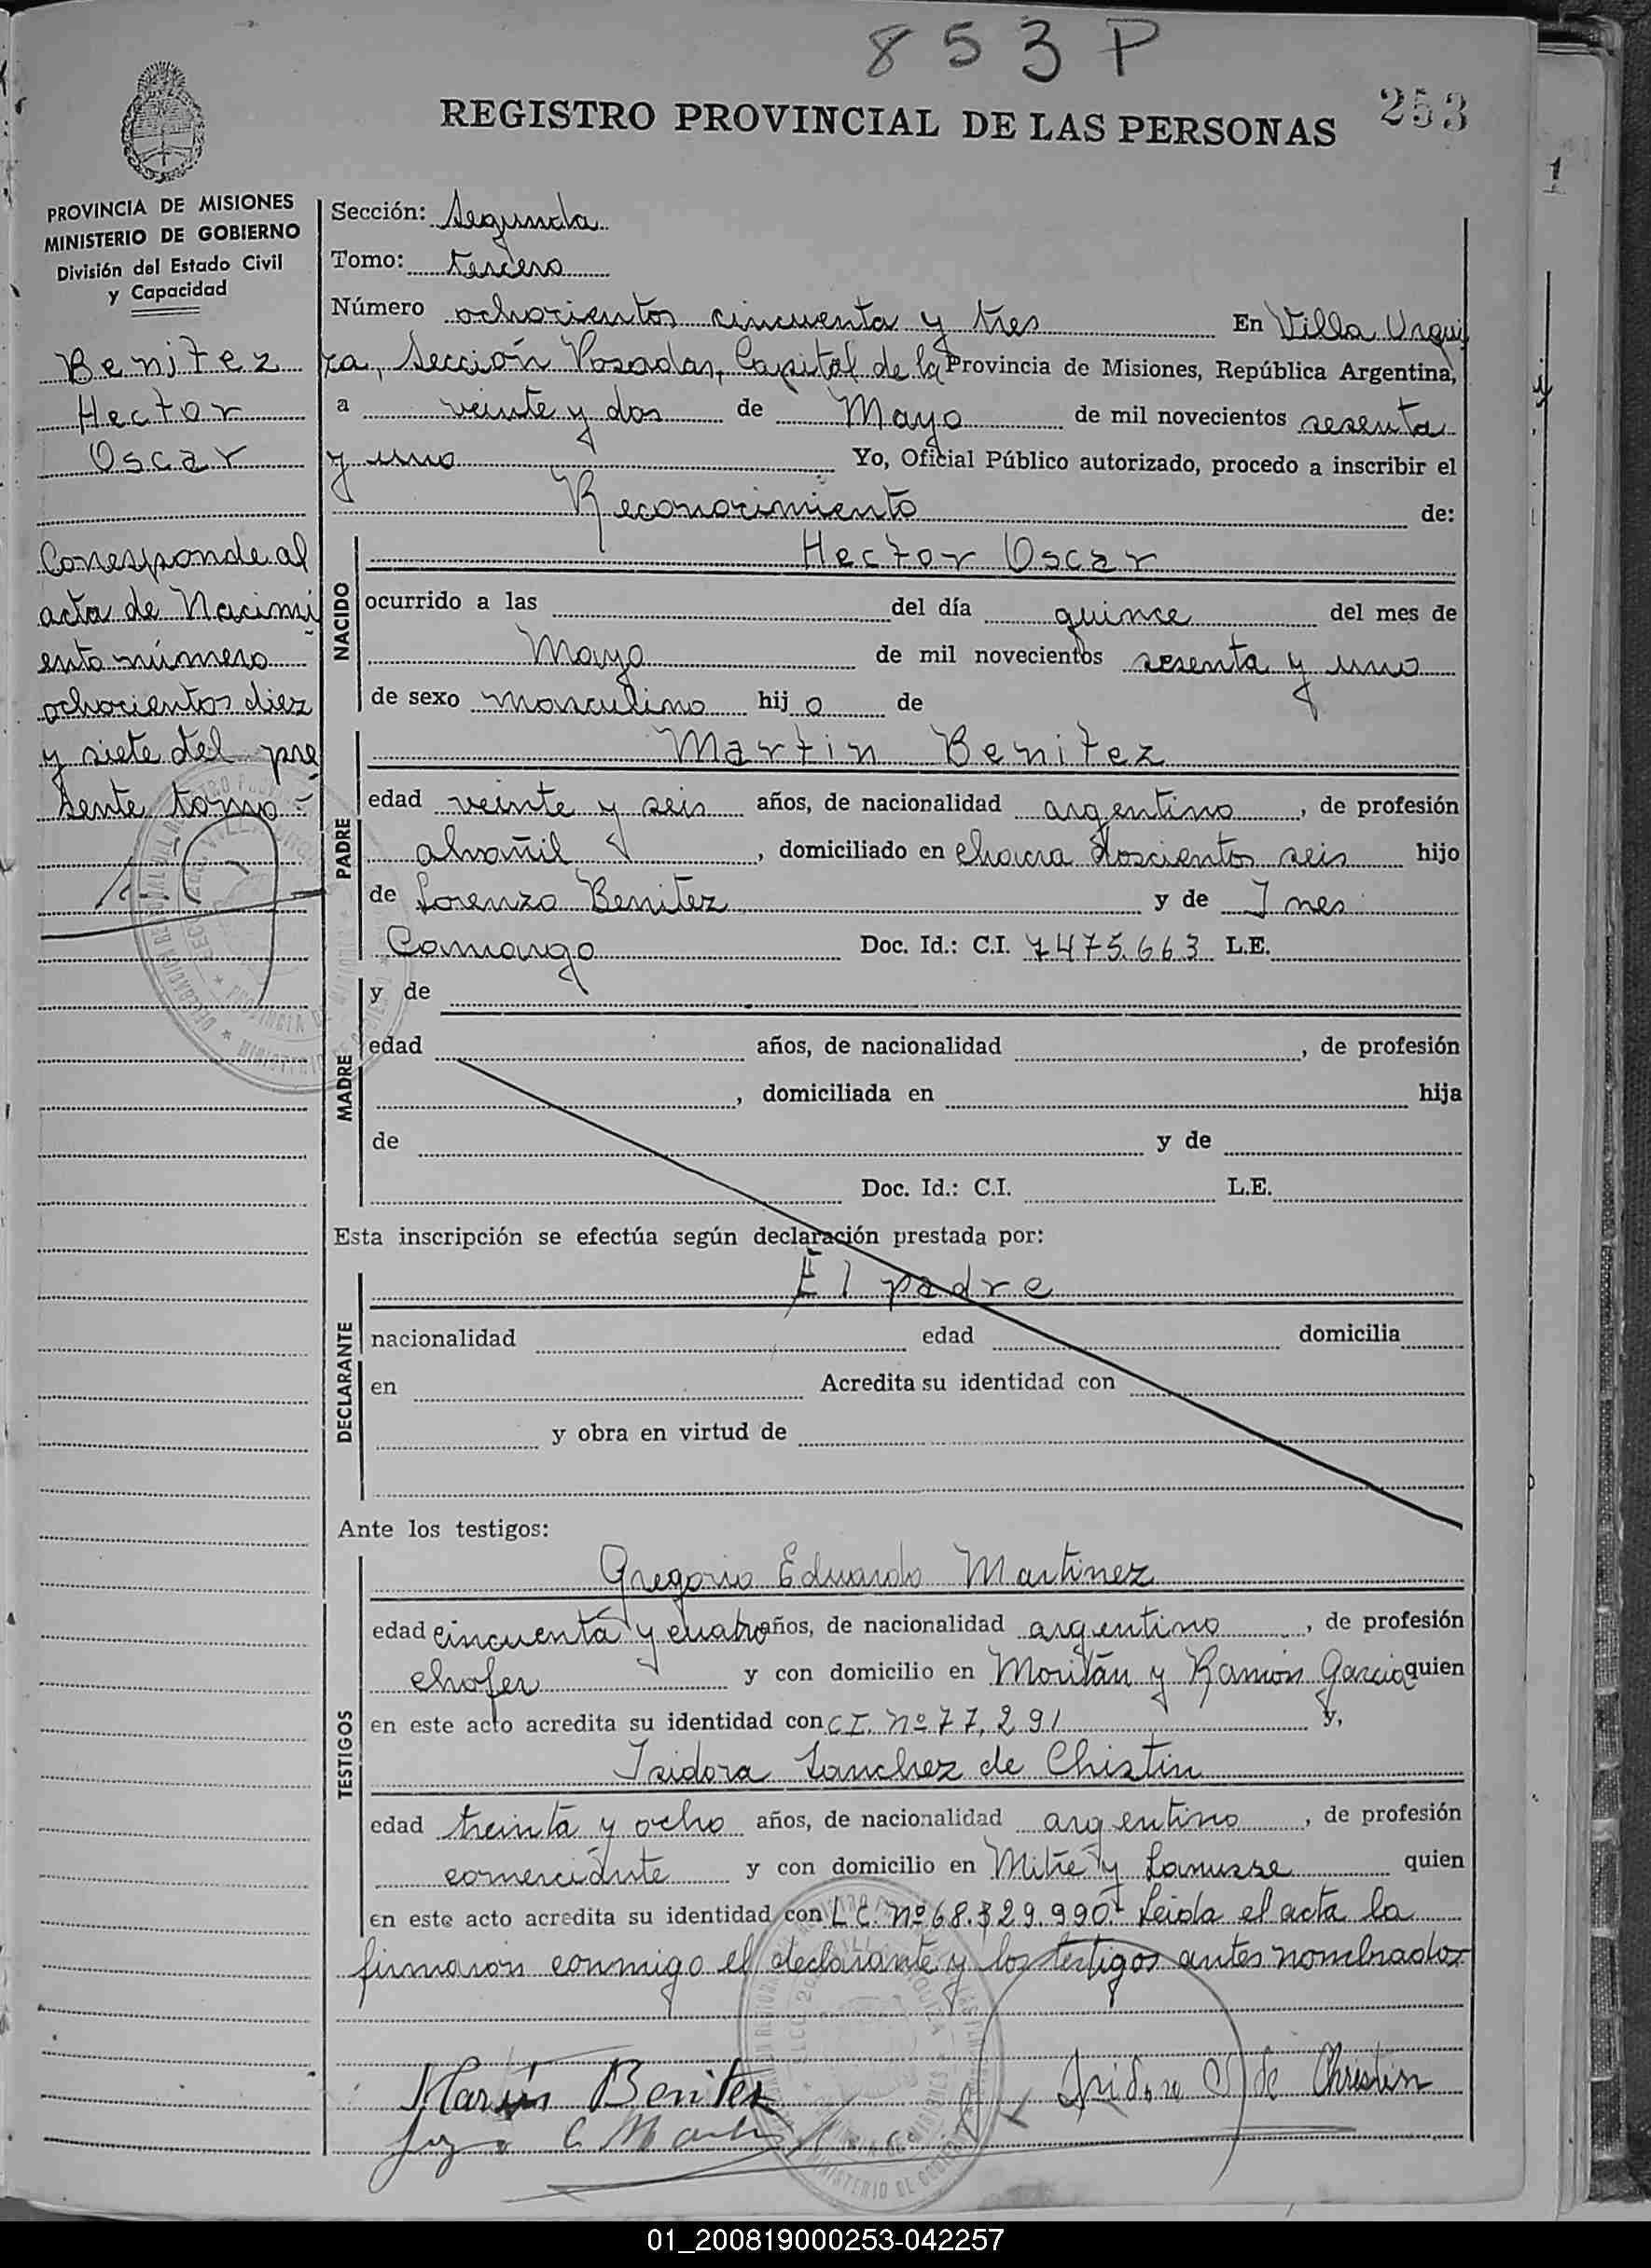 853 P
REGISTRO PROVINCIAL DE LAS PERSONAS
253
PROVINCIA DE MISIONES
MINISTERIO DE GOBIERNO
División del Estado Civil
y Capacidad
Benitez
Hector
Oscar
Corresponde al
acta de Nacimi
ento número
ochocientos diez
y siete del pre
sente tomo
Sección: Segunda
Tomo: tercero
Número ochocientos cincuenta y tres En Villa Urqui
za, Sección Posadas, Capital de la Provincia de Misiones, República Argentina,
a veinte y dos de Mayo de mil novecientos sesenta
y uno Yo, Oficial Público autorizado, procedo a inscribir el
Reconocimiento de:
NACIDO
Hector Oscar
ocurrido a las del día quince del mes de
Mayo de mil novecientos sesenta y uno
de sexo masculino hij o de
PADRE
Martin Benitez
edad veinte y seis años, de nacionalidad argentino, de profesión
alvañil, domiciliado en chacra doscientos seis hijo
de Lorenzo Benitez y de Ines
Camargo Doc. Id.: C.I. 7475.663 L.E.
MADRE
y de
edad años, de nacionalidad , de profesión
, domiciliada en hija
de y de
Doc. Id.: C.I. L.E.
Esta inscripción se efectúa según declaración prestada por:
DECLARANTE
El padre
nacionalidad edad domicilia
en Acredita su identidad con
y obra en virtud de
Ante los testigos:
TESTIGOS
Gregorio Eduardo Martinez
edad cincuenta y cuatro años, de nacionalidad argentino, de profesión
chofer y con domicilio en y Ramón Garcia quien
en este acto acredita su identidad con C.I. Nº 77,291 y,
Isidora Sanchez de Chistin
edad treinta y ocho años, de nacionalidad argentino, de profesión
comerciante y con domicilio en Mitre y Lanusse quien
en este acto acredita su identidad con L C. Nº 68.329.990. Leida el acta la
firmaron conmigo el declarante y los testigos antes nombrados
Martin Benitez
Isidora S de Christin
01_200819000253-042257